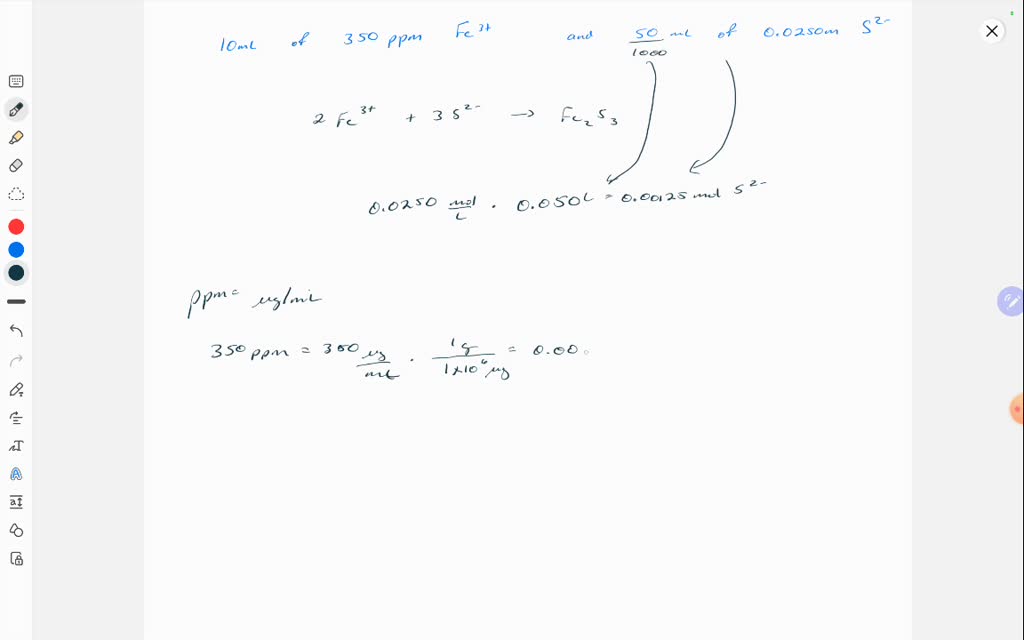 10mL of 350 ppm Fe³⁺ and 50/1000 mL of 0.0250m S²⁻
2 Fe³⁺ + 3 S²⁻ → Fe₂S₃
0.0250 mol/L . 0.050L = 0.00125 mol S²⁻
ppm = ug/mL
350 ppm = 350 ug/mL . 1g/1x10⁶ug = 0.00